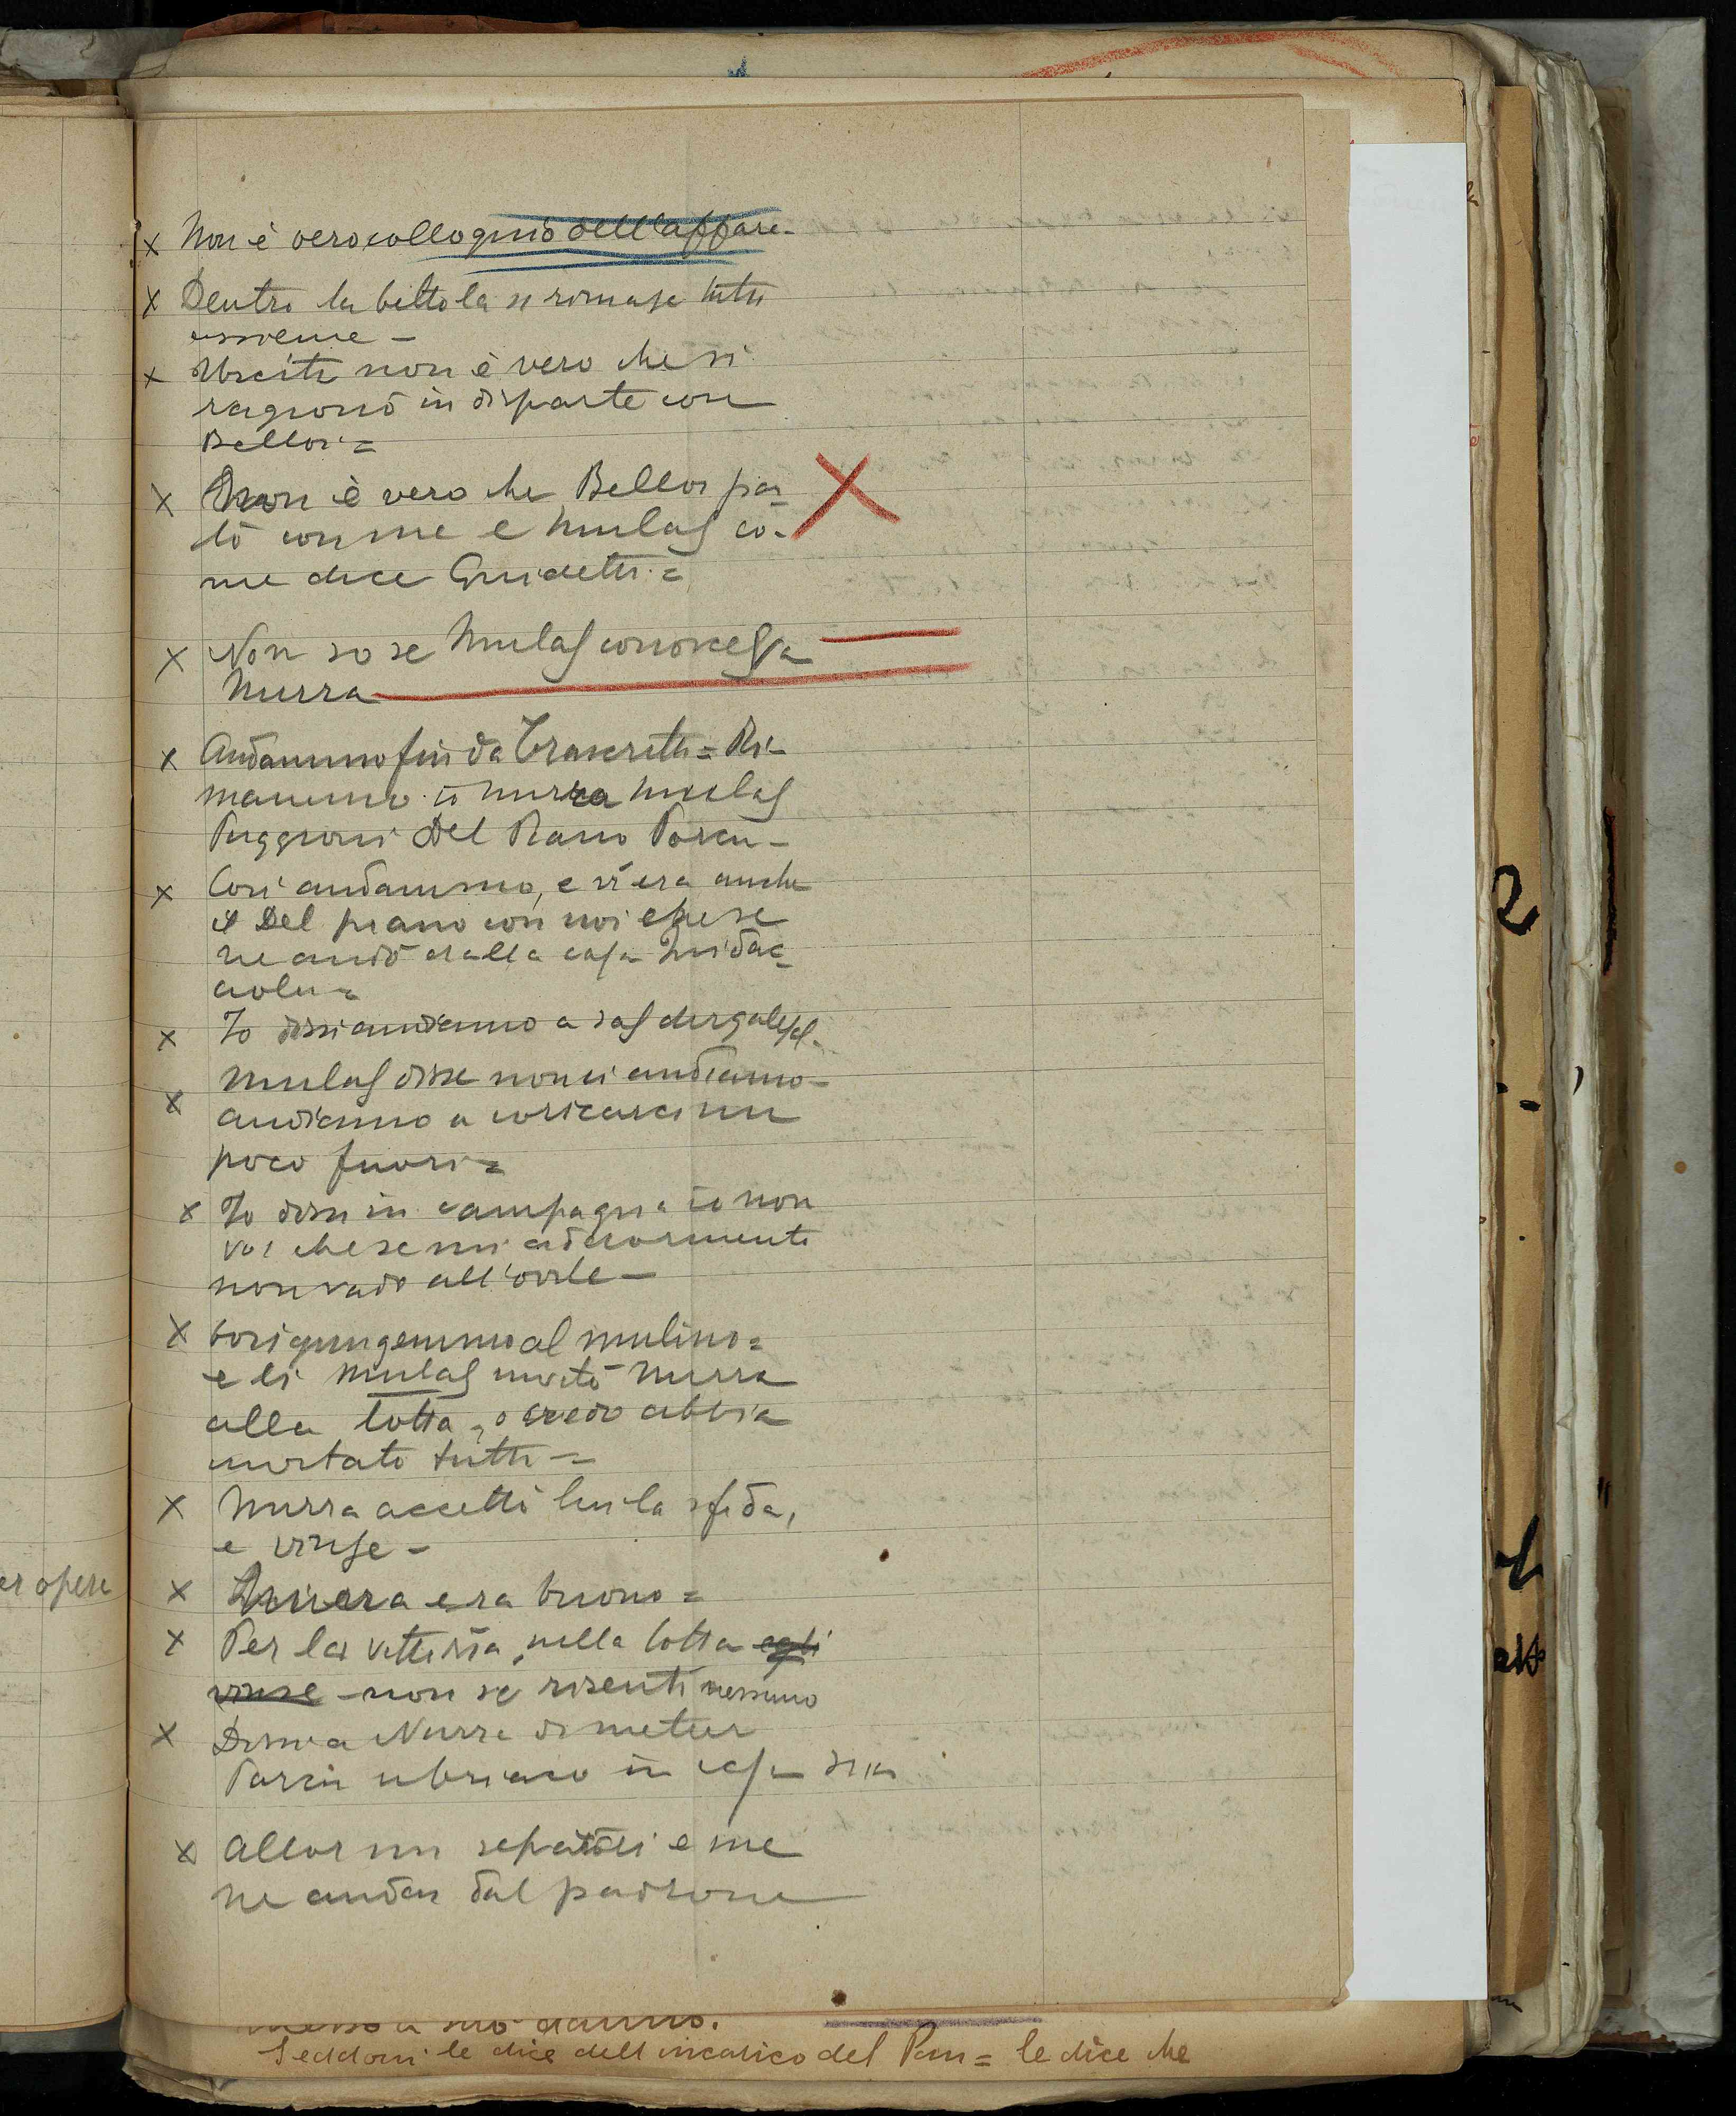 x Non è vero colloquio dell'affare -
x Dentro la bettola si rimase tutti
assieme -
x Usciti non è vero che si
ragionò in disparte con
Belloi =
x Non è vero che Belloi par=
lò con me e Mulas co=
me dice Guidetti =
x Non so se Mulas conoscesse
Nurra
x Andammo fin da Trascritti = Ri=
manemmo io Nurra Mulas
Puggioni Del Piano Porcu -
x Così andammo, e vi era anche
il Del piano con noi che se
ne andò alla casa
=
x Io dissi andiamo a sas
x Mulas disse non ci andiamo -
andiamo a coricarci un
poco fuori =
x Io dissi in campagna io non
voi che se mi addormento
non vado all'ovile -
x Così giungemmo al mulino =
e lì Mulas invitò Nurra
alla lotta, e credo abbia
invitato tutti =
x Nurra accettò lui la sfida,
e vinse -
x Nurra era buono =
x Per la vittoria, nella lotta egli
vinse - non se risentì nessuno
x Dissi a Nurra di metter
Porcu ubriaco in casa sua
x Allor mi separai e me
ne andai dal padrone
er opere
messo a suo danno.
Seddoni le dice dell'incarico del Pau = le dice che